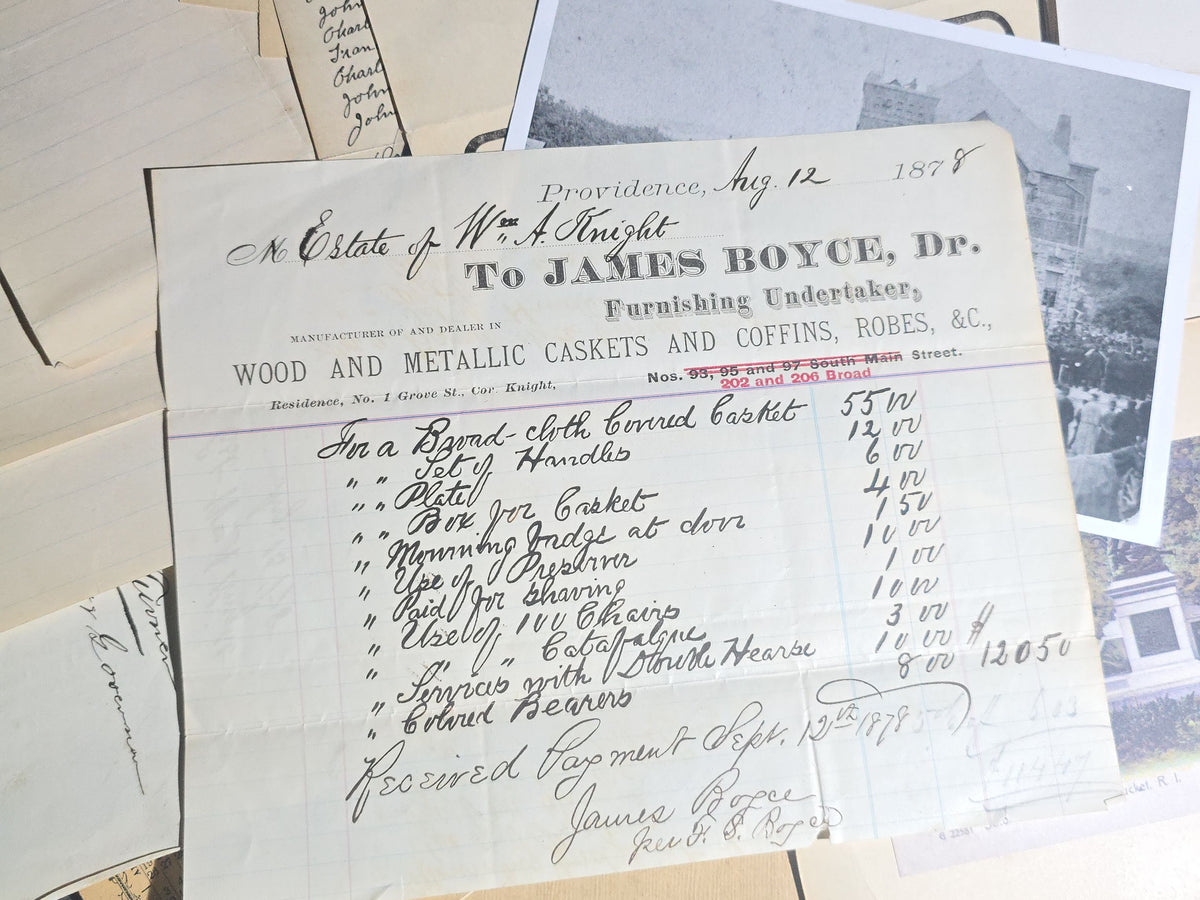 John
Charl
Fran
Charl
John
John
Providence, Aug. 12 1878
M Estate of Wm A. Knight
To JAMES BOYCE, Dr.
Furnishing Undertaker,
MANUFACTURER OF AND DEALER IN
WOOD AND METALLIC CASKETS AND COFFINS, ROBES, &C.,
Residence, No. 1 Grove St., Cor. Knight, Nos. 93, 95 and 97 South Main Street.
202 and 206 Broad
For a Broad-cloth Covered Casket 55 00
" " Set of Handles 12 00
" " Plate 6 00
" " Box for Casket 4 00
" Mourning Badge at door 1 50
" Use of Preserver 10 00
" Paid for Shaving 1 00
" Use of 100 Chairs 10 00
" " " Catafalque 3 00
" Services with Double Hearse 10 00
" Colored Bearers 8 00 $ 120 50
Received Payment Sept. 12th 1878
James Boyce
per F. S. Boyce
6 03
114 47
Governor
cket, R. I.